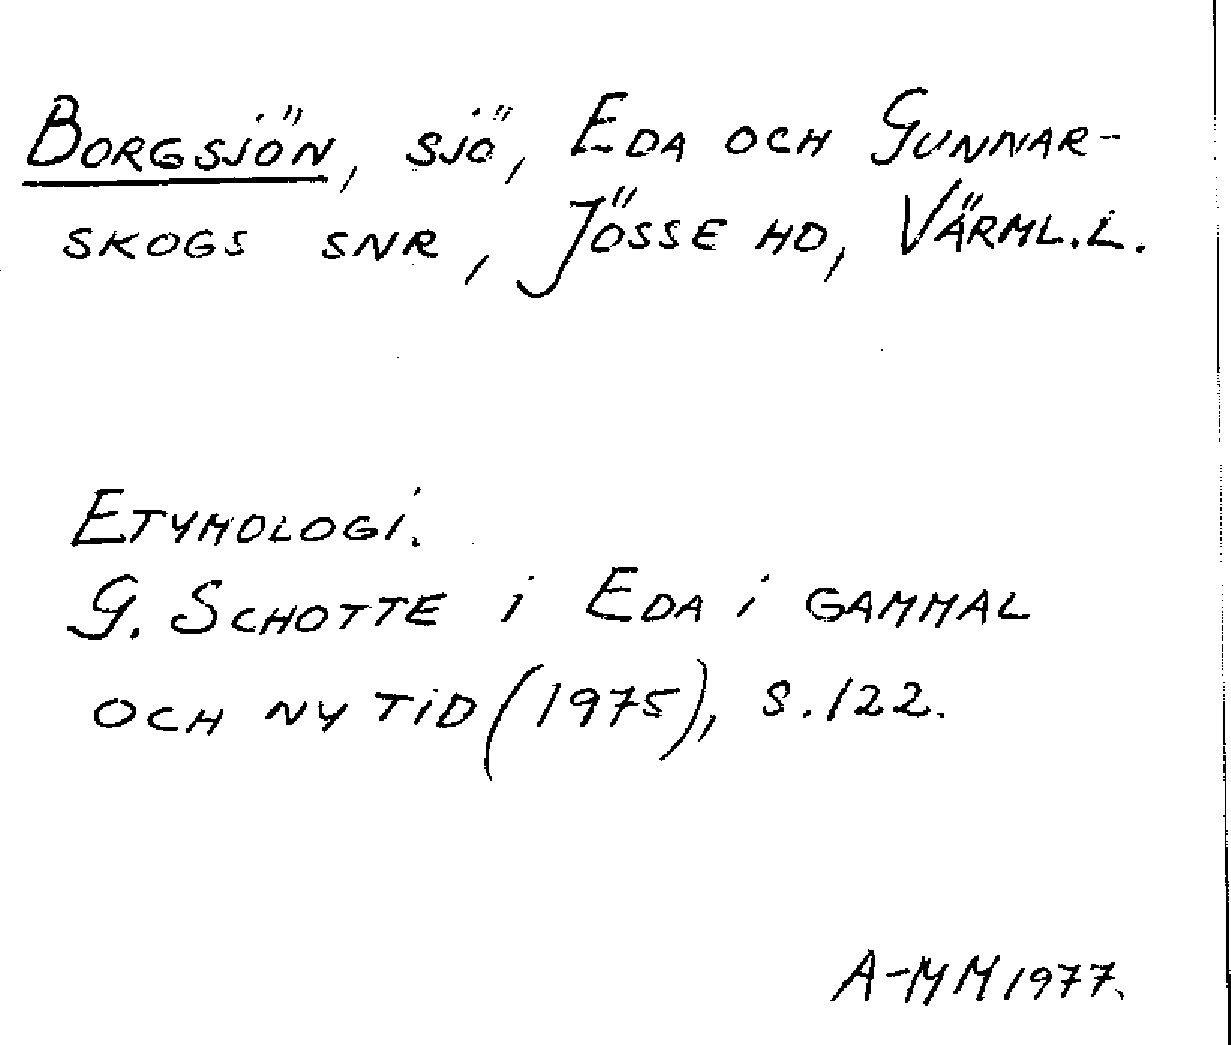 Borgsjön, sjö, Eda och Gunnar-
skogs snr, Jösse hd, Värml.l.
Etymologi.
G. Schotte i Eda i gammal
och ny tid (1975), s. 122.
A-MM 1977.